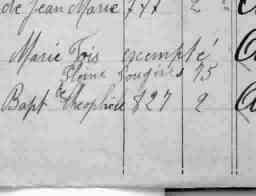 de Jean Marie 747 2
Marie Frs exempté
Plaine Fougères 75
Bapte Théophile 827 2